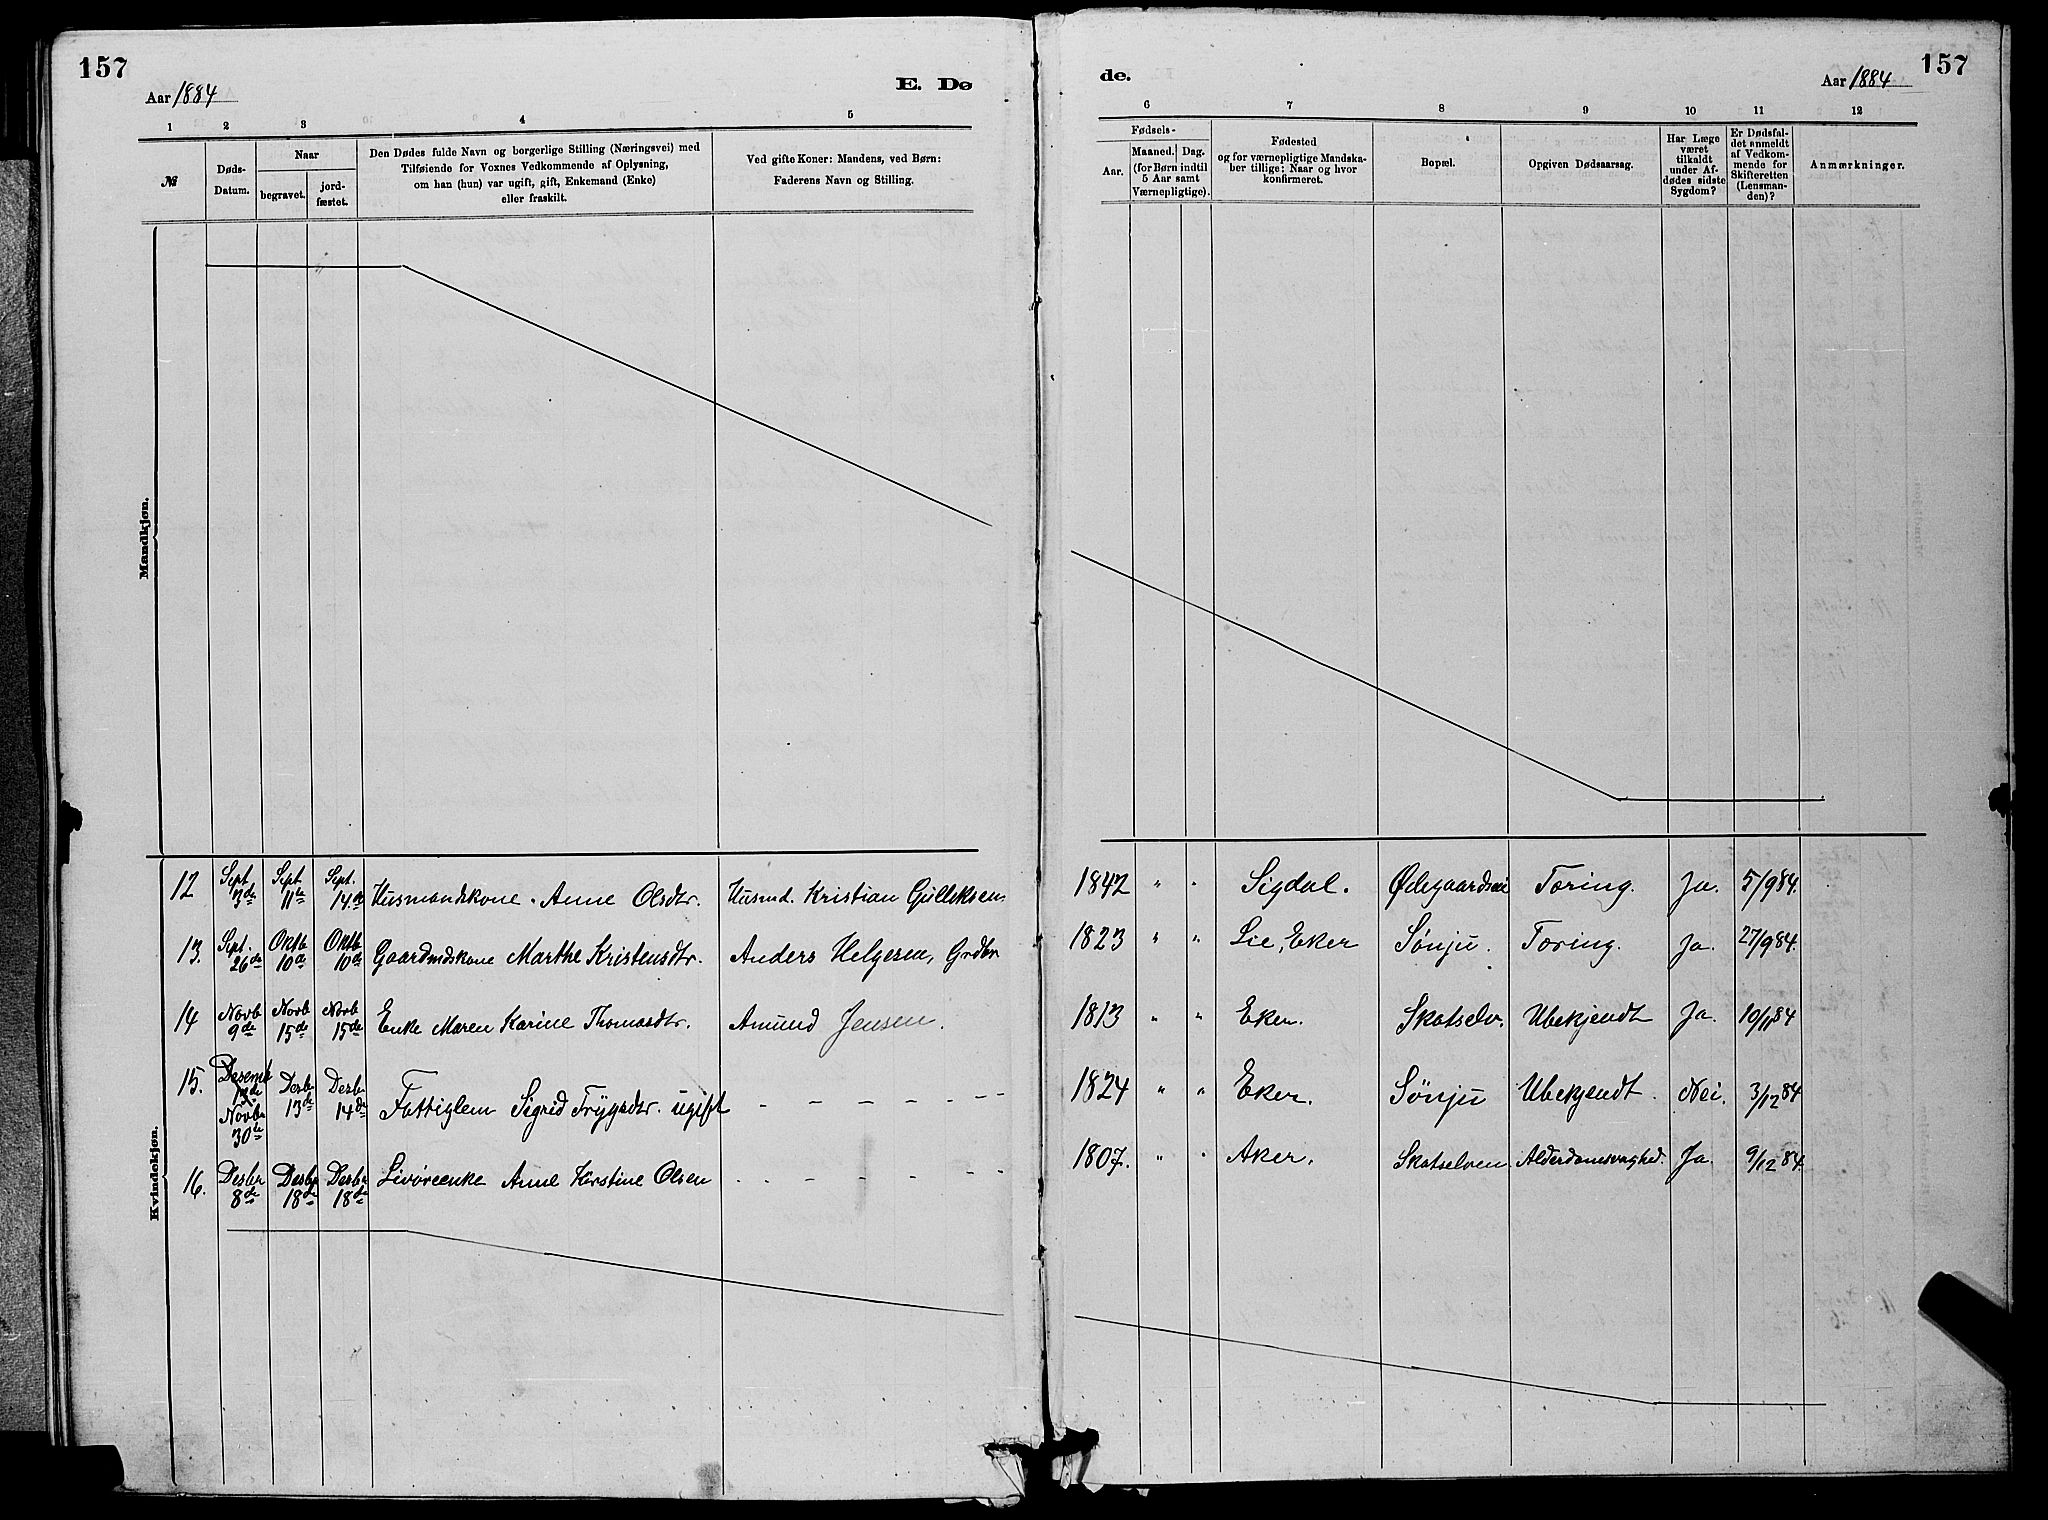 157
Aar 1884
E. Dø
1 2 3 4 5
№
Døds-
Datum.
Naar
begravet.
jord-
fæstet.
Den Dødes fulde Navn og borgerlige Stilling (Næringsvei) med
Tilføiende for Voxnes Vedkommende af Oplysning,
om han (hun) var ugift, gift, Enkemand (Enke)
eller fraskilt.
Ved gifte Koner: Mandens, ved Børn:
Faderens Navn og Stilling.
Mandkjøn.
Kvindekjøn.
12 Sept. 3de Sept. 11te Sept. 14de Husmandskone. Anne Olsdtr. Husmd. Kristian Gulleksen
13. Sept. 26de Oktb 10de Oktb 10de Gaardmdskone Marthe Kristensdtr. Anders Helgesen, Grdbr
14 Novb 9de Novb 15de Novb 15de Enke Maren Karine Thomasdtr. Amund Jensen.
15. Desemb 12de Novbr 30te Desbr 13de Desbr 14de Fattiglem Sigrid Trygsdtr. ugift - - - - - - -
16. Desbr 8de Desbr 18de Desbr 18de Anne Kirstine Olsen - - - - - - -
157
de.
Aar 1884
6 7 8 9 10 11 12
Fødsels-
Aar.
Maaned. Dag.
(for Børn indtil
5 Aar samt
Værnepligtige).
Fødested
og for værnepligtige Mandska-
ber tillige: Naar og hvor
konfirmeret.
Bopæl.
Opgiven Dødsaarsag.
Har Læge
været
tilkaldt
under Af-
dødes sidste
Sygdom?
Er Dødsfal-
det anmeldt
af Vedkom-
mende for
Skifteretten
(Lensman-
den)?
Anmærkninger.
1842 " " Sigdal. Ødegaardseie Tæring. Ja. 5/9 84.
1823 " " Lie, Eker Sønju. Tæring. Ja. 27/9 84.
1813 " " Eker. Skotselv. Ubekjendt Ja. 10/11 84
1824 " " Eker. Sønju Ubekjendt. Nei. 3/12 84
1807. " " Aker. Skotselven Alderdomssvaghed. Ja. 9/12 84.